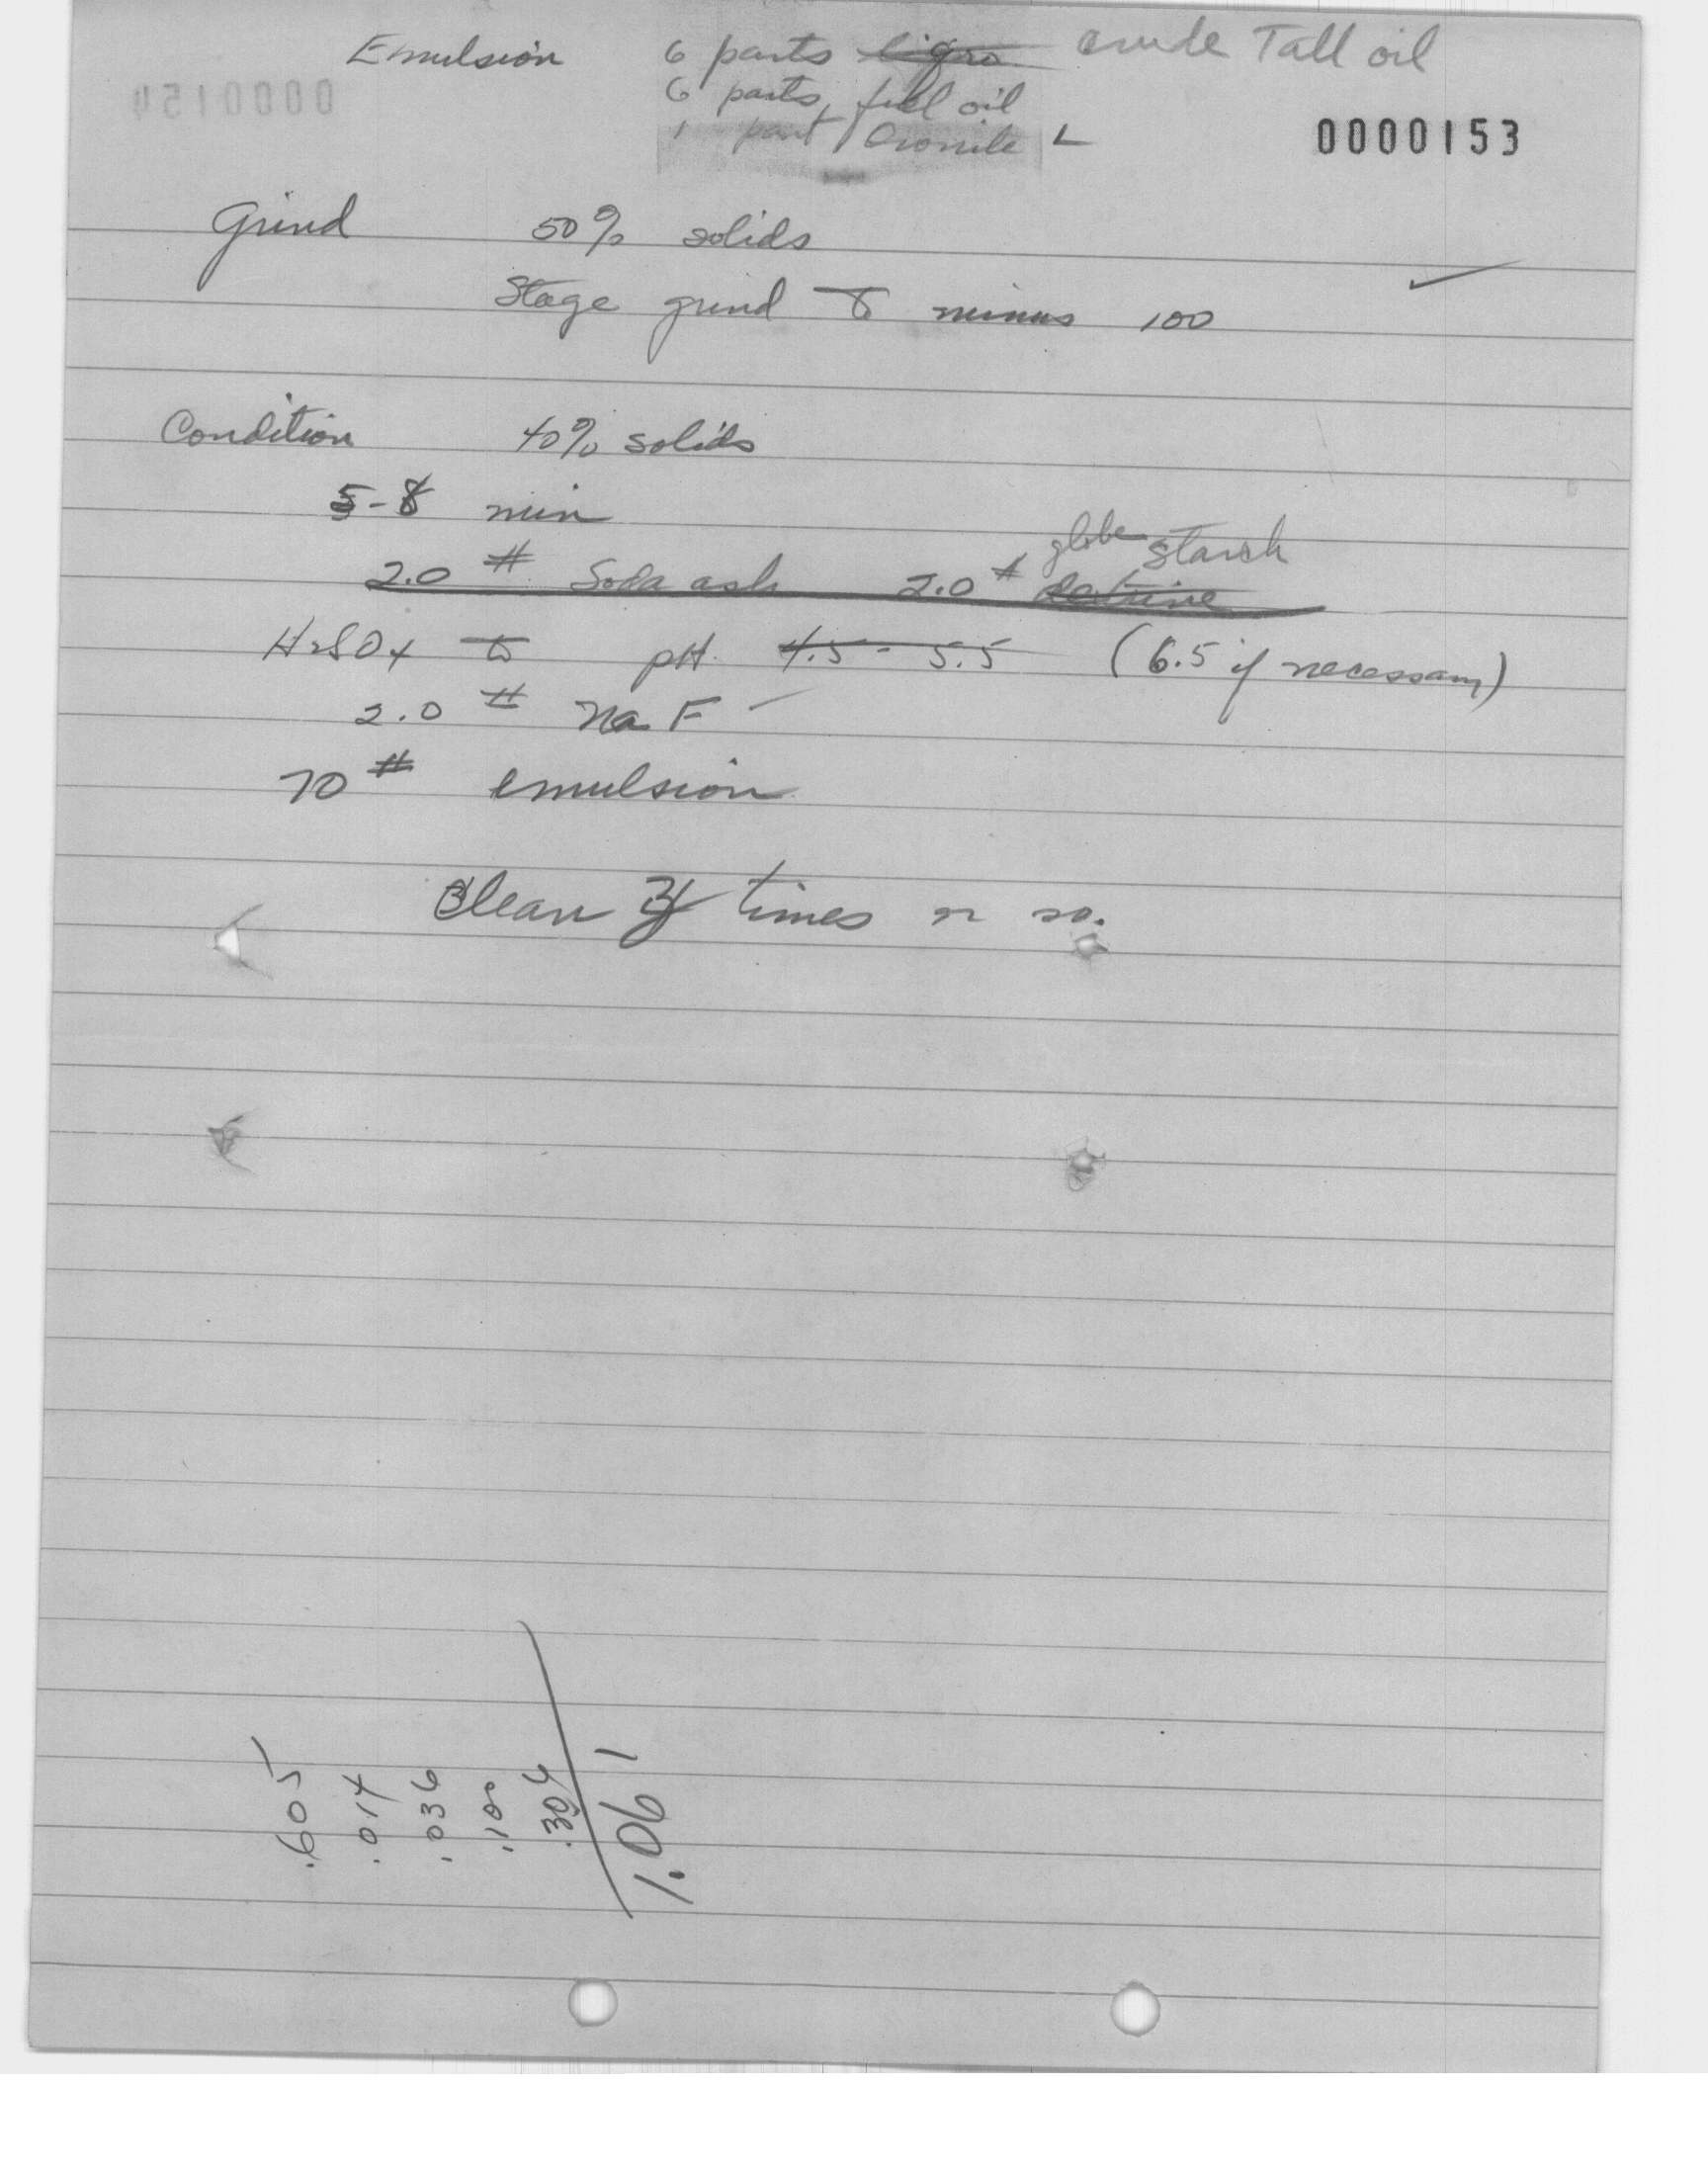 Emulsion 6 parts ligro crude Tall oil
6 parts fuel oil
1 part Oronite L
0000154
0000153
Grind 50% solids
Stage grind to minus 100
Condition 40% solids
5-8 min
globe starch
2.0 # Soda ash 2.0 # dextrine
H2SO4 to pH 4.5 - 5.5 (6.5 if necessary)
2.0 # NaF
70 # emulsion
Clean 3 times or so.
.605
.014
.036
.100
.306
1.061